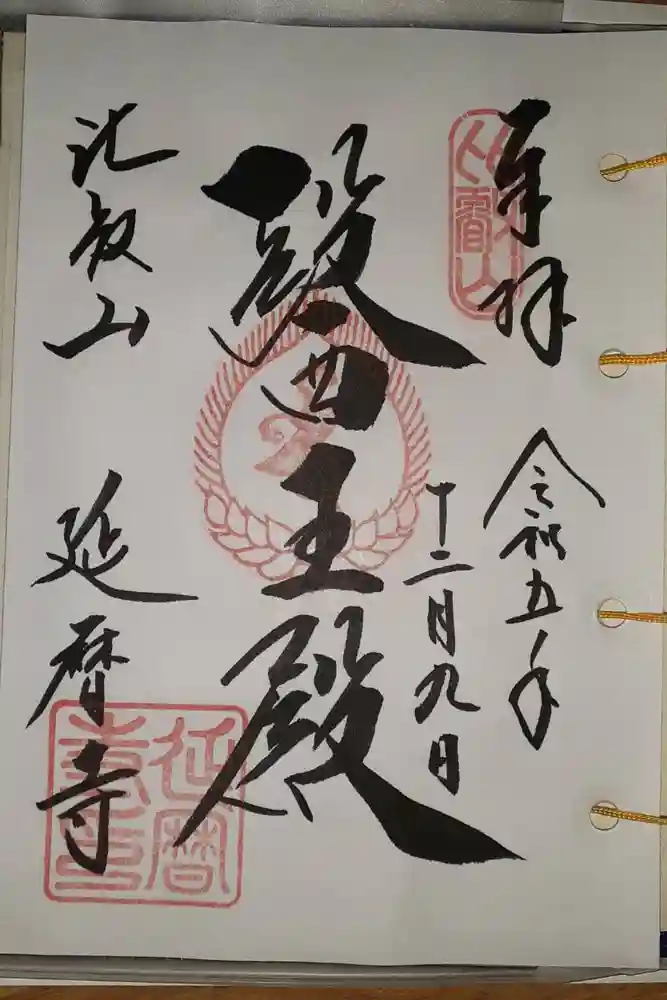 奉拝
比叡山
令和五年
十二月九日
醫王殿
比叡山
延暦寺
延暦
寺印